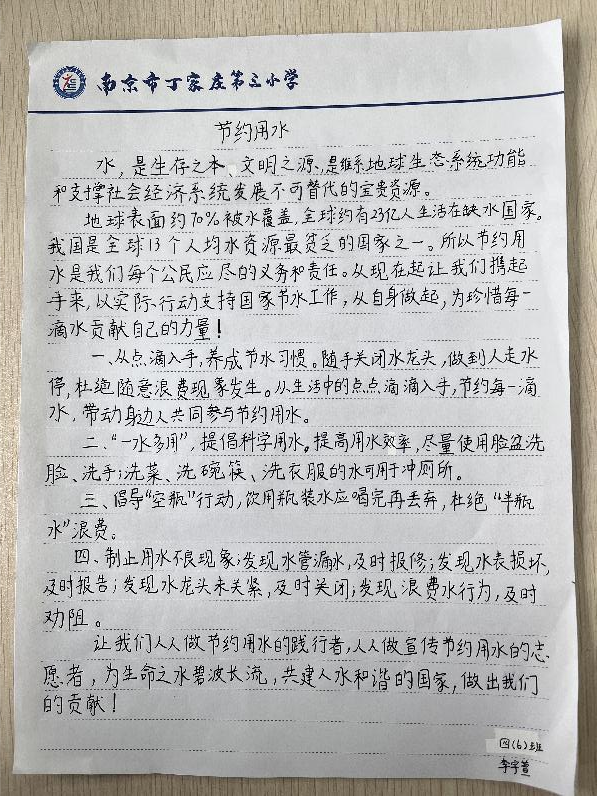 南京市丁家庄第三小学
节约用水
水,是生存之本、文明之源,是维系地球生态系统功能
和支撑社会经济系统发展不可替代的宝贵资源。
地球表面约70%被水覆盖,全球约有23亿人生活在缺水国家。
我国是全球13个人均水资源最贫乏的国家之一。所以节约用
水是我们每个公民应尽的义务和责任。从现在起让我们携起
手来,以实际行动支持国家节水工作,从自身做起,为珍惜每一
滴水贡献自己的力量!
一、从点滴入手,养成节水习惯。随手关闭水龙头,做到人走水
停,杜绝随意浪费现象发生。从生活中的点点滴滴入手,节约每一滴
水,带动身边人共同参与节约用水。
二、“一水多用”,提倡科学用水。提高用水效率,尽量使用脸盆洗
脸、洗手;洗菜、洗碗筷、洗衣服的水可用于冲厕所。
三、倡导“空瓶”行动,饮用瓶装水应喝完再丢弃,杜绝“半瓶
水”浪费。
四、制止用水不良现象;发现水管漏水,及时报修;发现水表损坏,
及时报告;发现水龙头未关紧,及时关闭;发现浪费水行为,及时
劝阻。
让我们人人做节约用水的践行者,人人做宣传节约用水的志
愿者,为生命之水碧波长流,共建人水和谐的国家,做出我们
的贡献!
四(6)班
李宇萱